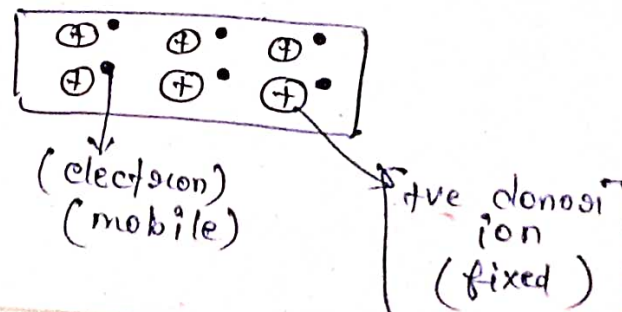 ⊕ • ⊕ • ⊕ •
⊕ • ⊕ • ⊕ •
(electron)
(mobile)
+ve donor
ion
(fixed)